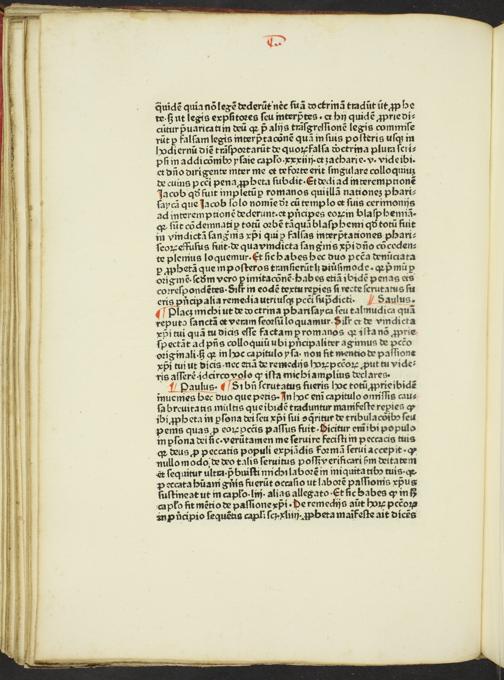 quidē quia nō legē dederūt nec suā doctrinā tradūt ut ꝓphe
te. sꝫ ut legis expositores seu interp̄tes. et hij quidē ꝓprie di
cūtur p̄uaricati in deū qꝛ ꝑ alijs trāsgressionē legis commise
rūt ꝑ falsam legis interp̄tacōnē quā in suis posteris usqꝫ in
hodiernū diē trāsportarūt de quoꝝ falsa doctrina plura scri
psi in addicōnibꝰ ysaie caplo. xxxiiii. et zacharie. v. vide ibi
et dn̄o dirigente inter me et te forte erit singulare colloquiū
de cuius pctī pena ꝓpheta subdit. Et dedi ad interemptionē
Jacob qd̓ fuit impletū ꝑ romanos qui illā nationē phari
saycā que Jacob solo nomīe dr̄ cū templo et suis cerimonijs
ad interemptionē dederunt. et p̄ncipes eoꝝ in blasphemiā.
qꝛ sūt cōdemnati ꝑ totū orbē tāquā blasphemi qd̓ totū fuit
in vindictā sanguīs xp̄i qui ꝑ falsas interp̄tationes phari
seoꝝ effusus fuit. de qua vindicta sanguīs xp̄i dn̄o cōceden
te plenius loquemur. Et sic habes hec duo pctā denūciata
ꝑ ꝓphetā que in posteros transierūt
origīnē. scd̓m vero ꝑ imitacōnē. habes etiā ibidē penas eis
correspondētes. Silr̄ in eodē textu repies si recte scrutatus fu
eris prīcipalia remedia utriusqꝫ pctī supdicti. Saulus.
Placꝫ michi ut de doctrina pharisayca seu talmudica quā
reputo sanctā et veram seorsū loquamur. Silr̄ et de vindicta
xp̄i tui quā tu dicis esse factam ꝑ romanos qꝛ ista nō ꝓprie
spectāt ad pn̄s colloquiū ubi prīcipaliter agimus de pctō
originali. sꝫ qꝛ in hoc capitulo ysa. non fit mentio de passione
xp̄i tui ut dicis. nec etiā de remedijs hoꝝ pctōꝝ. put tu vide
ris asserē. idcirco volo qꝛ ista michi amplius declares.
Paulus. Si bn̄ scrutatus fueris hoc totū ꝓprie ibidē
inuenies hec duo que petis. In hoc em̄ capitulo omissis cau
sa breuitatis multis que ibidē traduntur manifeste repies qꝛ
ibi ꝓpheta in ꝑsona dei seu xp̄i sui cōqritur de tribulacōibꝰ seu
penis quas ꝑ eoꝝ pctīs passus fuit. Dicitur em̄ ibi populo
in ꝑsona dei sic. verūtamen me seruire fecisti in peccatis tuis
qꝛ deus ꝑ peccatis populi expiādis formā serui accepit. qꝛ
nullo modo de deo talis seruitus posset verificari scm̄ deitatem
et sequitur ulta. p̄buisti michi laborē in iniquitatibꝰ tuis. qꝛ
ꝑ peccata hūani gn̄is fuerūt occasio ut laborē passionis xp̄us
sustineat ut in caplo. liij. alias allegato. Et sic habes qꝛ in hͦ
caplo fit mētio de passione xp̄i. De remedijs aūt hoꝝ pctōꝝ
in p̄ncipio sequētis capli. scꝫ. xliiij. ꝓpheta maīfeste ait dicēs